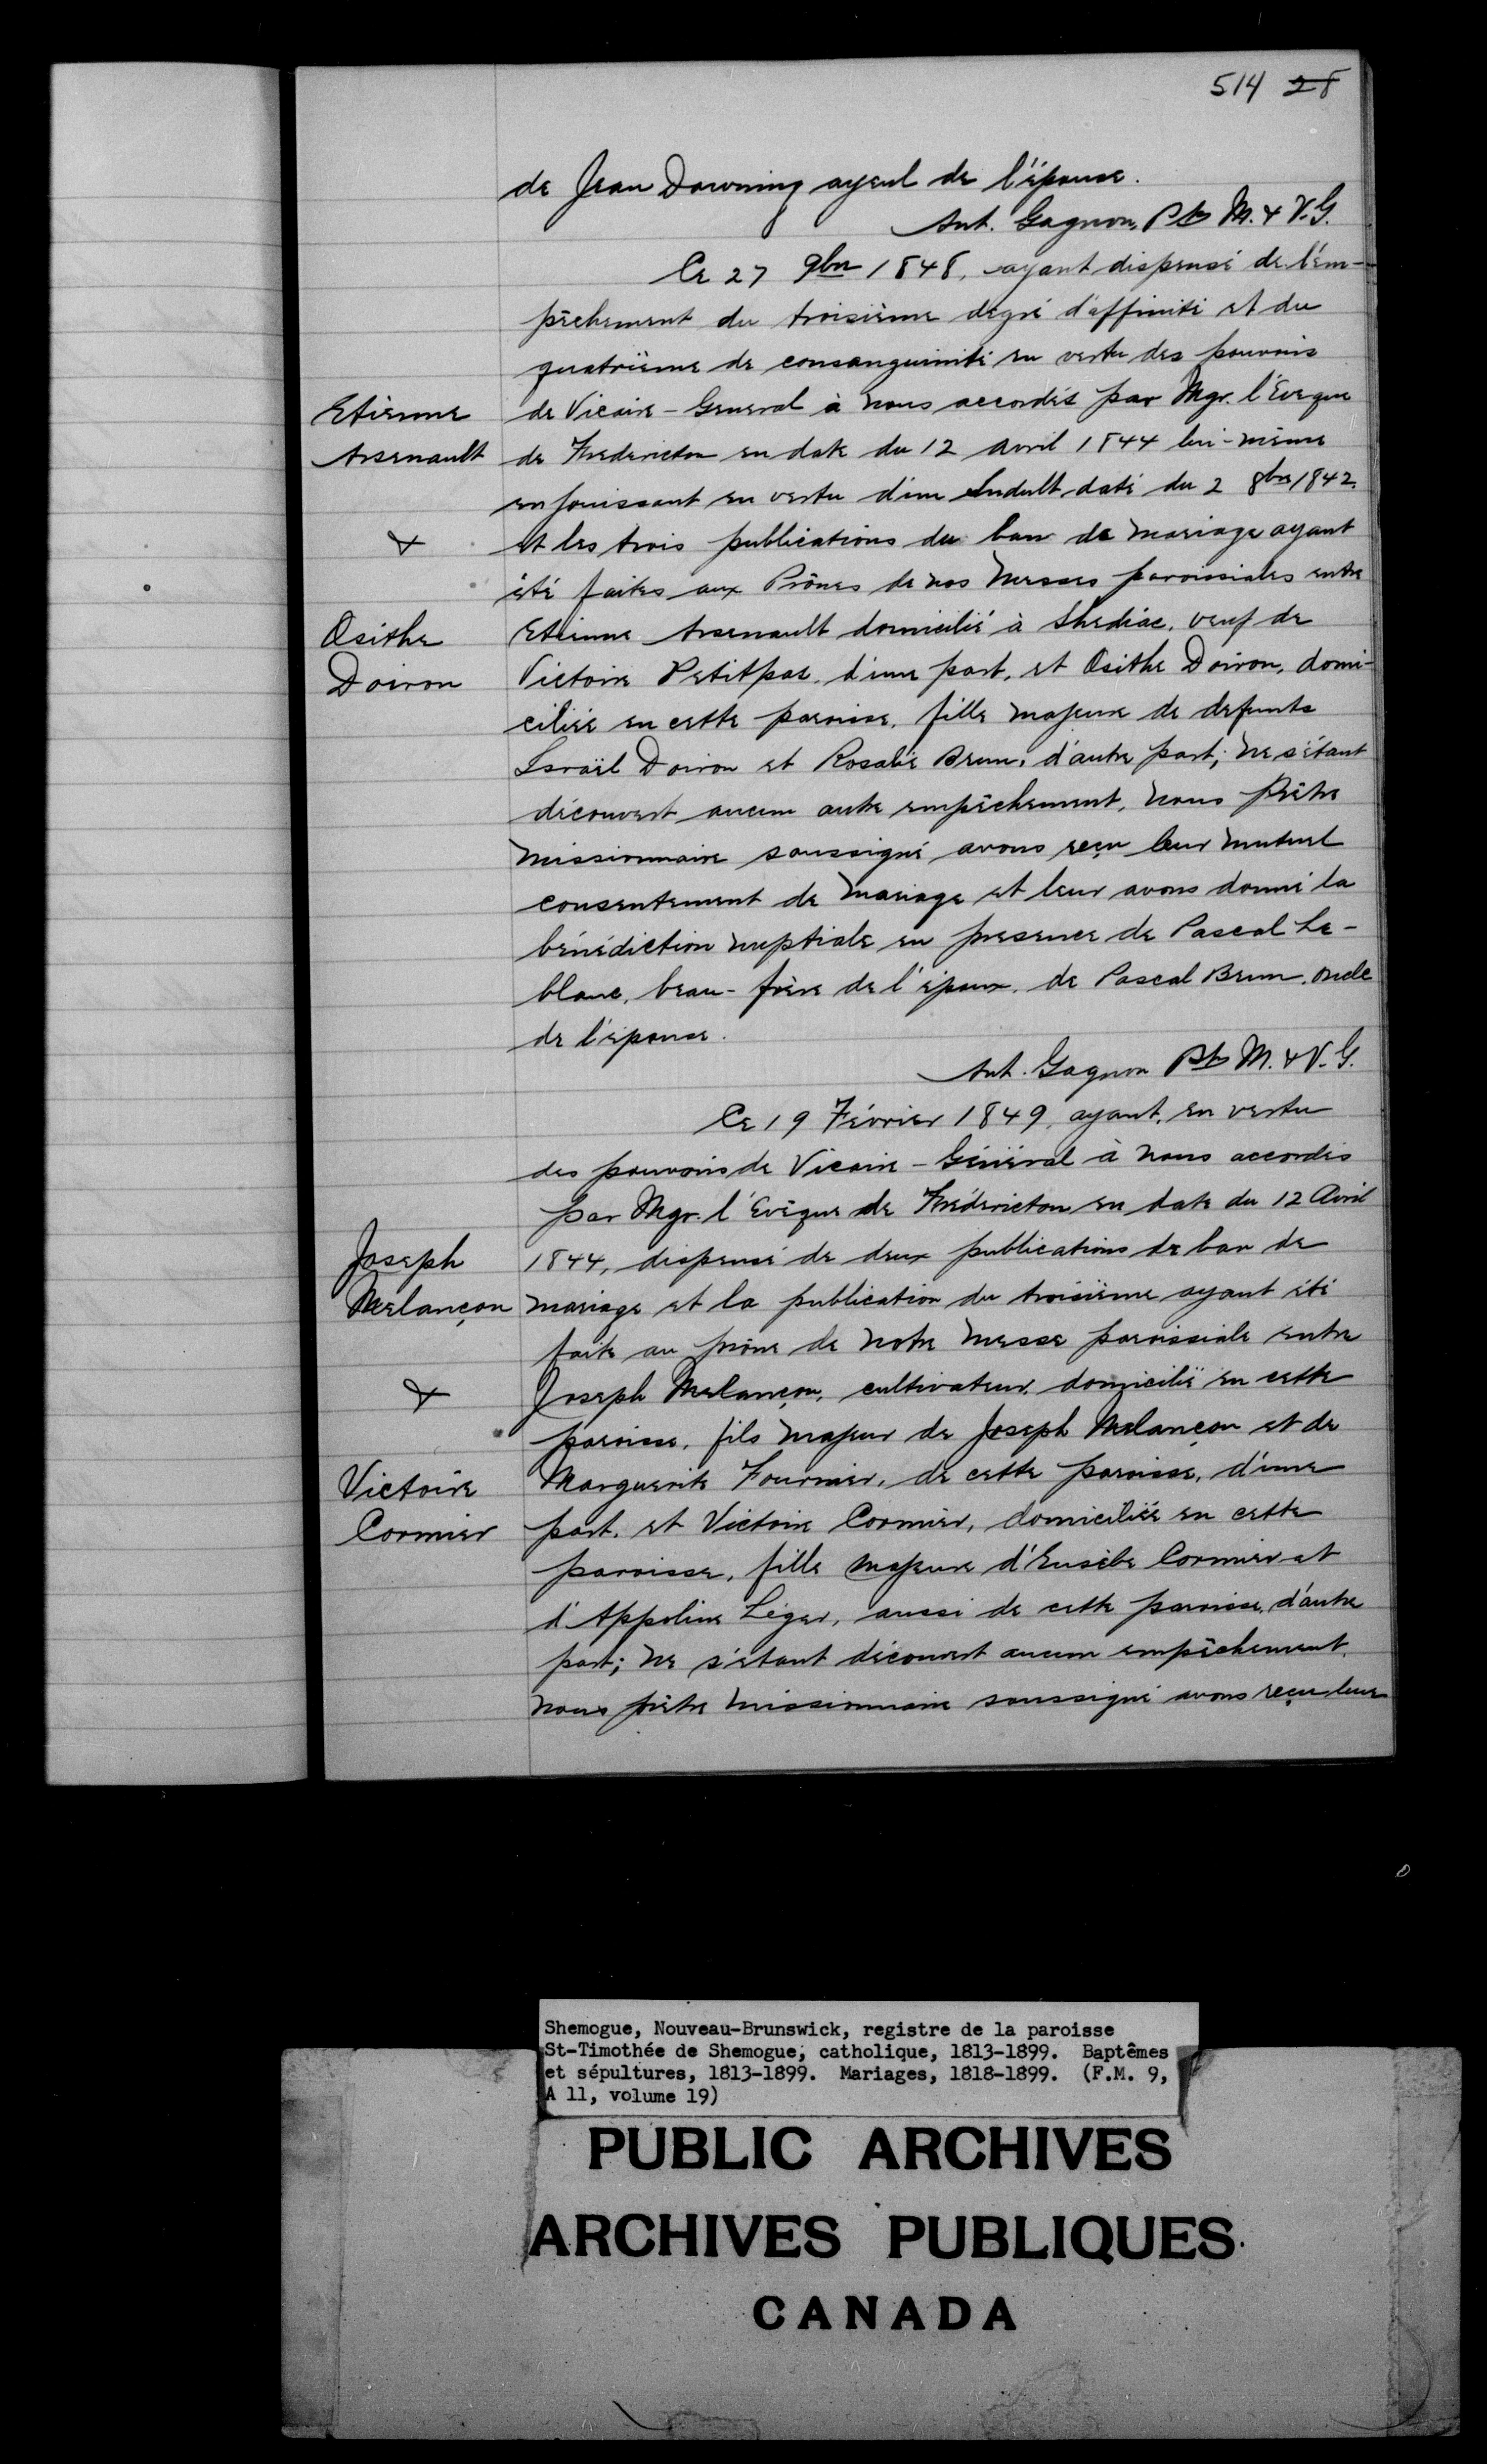 514 28
de Jean Downing ayeul de l'épouse.
Ant. Gagnon, Ptre M. & V.G.
Ce 27 9bre 1848, ayant dispensé de l'em-
pêchement du troisième degré d'affinité et du
quatrième de consanguinité en vertu des pouvoirs
Etienne
de Vicaire-General à nous accordés par Mgr. l'Evêque
Arsenault
de Fredericton en date du 12 Avril 1844 lui-même
en jouissant en vertu d'un Indult daté du 2 8bre 1842,
&
et les trois publications du ban de mariage ayant
été faites aux Prônes de nos Messes paroissiales entre
Osithe
Etienne Arsenault domicilié à Shediac, veuf de
Doiron
Victoire Petitpas, d'une part, et Osithe Doiron, domi-
ciliée en cette paroisse, fille majeure de defunts
Israël Doiron et Rosalie Brun, d'autre part; ne s'étant
découvert aucun autre empêchement, nous Prêtre
Missionnaire soussigné avons reçu leur mutuel
consentement de mariage et leur avons donné la
bénédiction nuptiale en presence de Pascal Le-
blanc, beau-frère de l'époux, de Pascal Brun, oncle
de l'épouse.
Ant. Gagnon Ptre M. & V.G.
Ce 19 Février 1849, ayant, en vertu
des pouvoirs de Vicaire-Général à nous accordés
par Mgr. l'Evêque de Frédericton en date du 12 Avril
Joseph
1844, dispensé de deux publications de ban de
Melançon
mariage et la publication du troisième ayant été
faite au prône de notre messe paroissiale entre
&
Joseph Melançon, cultivateur, domicilié en cette
paroisse, fils majeur de Joseph Melançon et de
Victoire
Marguerite Fournier, de cette paroisse, d'une
Cormier
part, et Victoire Cormier, domiciliée en cette
paroisse, fille majeure d'Eusèbe Cormier et
d'Appoline Léger, aussi de cette paroisse, d'autre
part; ne s'étant découvert aucun empêchement,
nous prêtre missionnaire soussigné avons reçu leur
Shemogue, Nouveau-Brunswick, registre de la paroisse
St-Timothée de Shemogue, catholique, 1813-1899. Baptêmes
et sépultures, 1813-1899. Mariages, 1818-1899. (F.M. 9,
A 11, volume 19)
PUBLIC ARCHIVES
ARCHIVES PUBLIQUES
CANADA